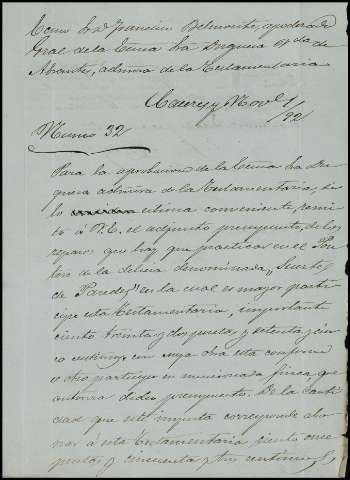 Excmo Sr. Dn Francisco Belmonte, apoderado
Gral de la Excma Sra Duquesa Vda de
Abrantes, admora de la Testamentaria
Caceres y Novbe 1/92
Numo 32
Para la aprobacion de la Excma Sra Du-
quesa admora de la Testamentaria, si
lo estima conveniente, remi-
to á V.E. el adjunto presupuesto, de los
reparos que hay que practicar en el
de la dehesa denominada "Suerte
de Paredes" en la cual es mayor parti-
cipe esta Testamentaria, importante
ciento treinta y dos pesetas y setenta y cin-
co centimos, con cuya obra está conforme
el otro participe en mencionada finca, que
autoriza dicho presupuesto. De la canti-
dad que este importa corresponde abo-
nar á esta Testamentaria ciento once
pesetas y cincuenta y tres centimos,